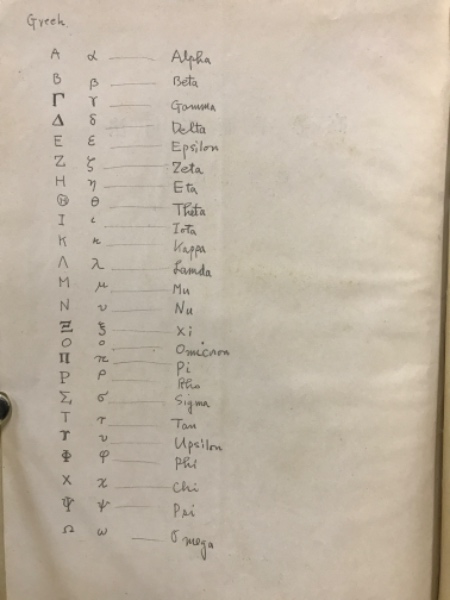 Greek.
Α α —— Alpha
Β β —— Beta
Γ γ —— Gamma
Δ δ —— Delta
Ε ε —— Epsilon
Ζ ζ —— Zeta
Η η —— Eta
Θ θ —— Theta
Ι ι —— Iota
Κ κ —— Kappa
Λ λ —— Lamda
Μ μ —— Mu
Ν ν —— Nu
Ξ ξ —— Xi
Ο ο —— Omicron
Π π —— Pi
Ρ ρ —— Rho
Σ σ —— Sigma
Τ τ —— Tau
Υ υ —— Upsilon
Φ φ —— Phi
Χ χ —— Chi
Ψ ψ —— Psi
Ω ω —— Omega